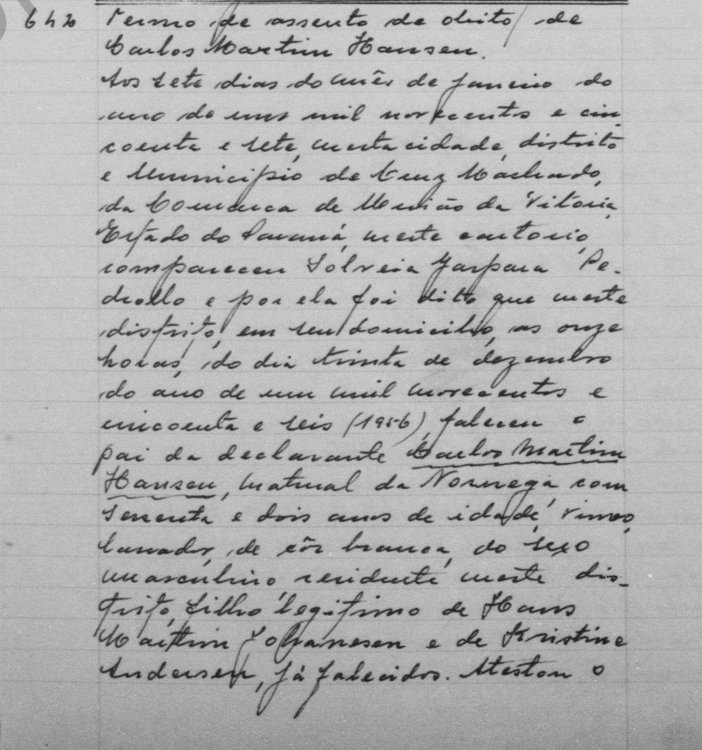 642 Termo de assento de obito, de
Carlos Martim Hansen.
Aos sete dias do mês de Janeiro do
ano de um mil novecentos e cin
coenta e sete, nesta cidade, distrito
e Municipio de Cruz Machado,
da Comarca de União da Vitoria,
Estado do Paraná, neste cartorio,
compareceu Solveia Gaspara Pe-
drollo e por ela foi dito que neste
distrito, em seu domicilio, as onze
horas, do dia trinta de dezembro
do ano de um mil novecentos e
cincoenta e seis (1956), faleceu o
pai da declarante Carlos Martim
Hansen, natural da Noruega com
setenta e dois anos de idade, viuvo,
lavrador, de côr branca, do sexo
masculino residente neste dis-
trito, filho legitimo de Hans
Martim Johansen e de Kristine
Andersen, já falecidos. Atestou o